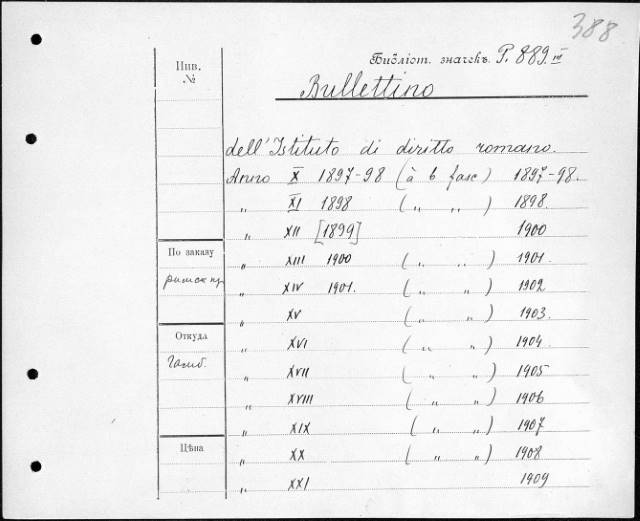 388
Библіот. значекъ. P. 889. III
Инв. №
Bullettino
dell'Istituto di diritto romano.
Anno X 1897-98 (à 6 fasc) 1897-98.
„ XI 1898 („ „) 1898.
„ XII [1899] 1900
По заказу
„ XIII 1900 („ „) 1901.
римск пр
„ XIV 1901. („ „) 1902
„ XV („ „) 1903.
Откуда
„ XVI („ „) 1904.
„ XVII („ „) 1905
„ XVIII („ „) 1906
„ XIX („ „) 1907
Цѣна
„ XX („ „) 1908
„ XXI 1909